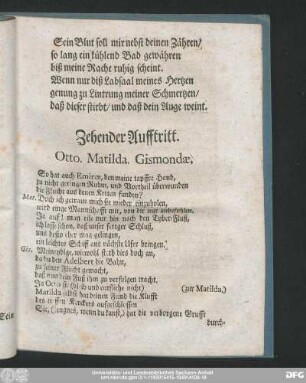 Sein Blut soll mir nebst deinen Zähren/
so lang ein kühlend Bad gewähren
biß meine Rache ruhig scheint.
Wenn nur diß Labsaal meines Hertzen
genung zu Lintrung meiner Schmertzen/
daß dieser stirbt/ und daß dein Auge weint.
Zehender Aufftritt.
Otto. Matilda. Gismondæ,
So hat auch Emiren, den meine tapffre Hand,
zu nicht geringen Ruhm, und Vortheil überwunden
die Flucht aus denen Ketten funden?
Mat. Doch ich getraue mich sie wieder einzuholen,
wird einge Mannschafft mir, von dir nur anbefohlen.
Ja auf! man eile nur hin nach den Tyber Fluß,
ich lasse schon, daß unser seitger Schluß,
und desto eher mag gelingen,
ein leichtes Schiff ans nächste Ufer bringen.
Gis. Meineydige, wie wohl steh dies doch an,
da du den Adelbert die Bahn,
zu seiner Flucht gewacht,
daß man dein Auß ihm zu verfolgen tracht.
Ja Otto
Matilda selbst hat deinem Feind die Klufft (zur Matilda.)
des tieffen Kerckers aufgeschlossen
Sie, (leugnes, wenn du kanst,) hat die verborgene Grufft
durch-